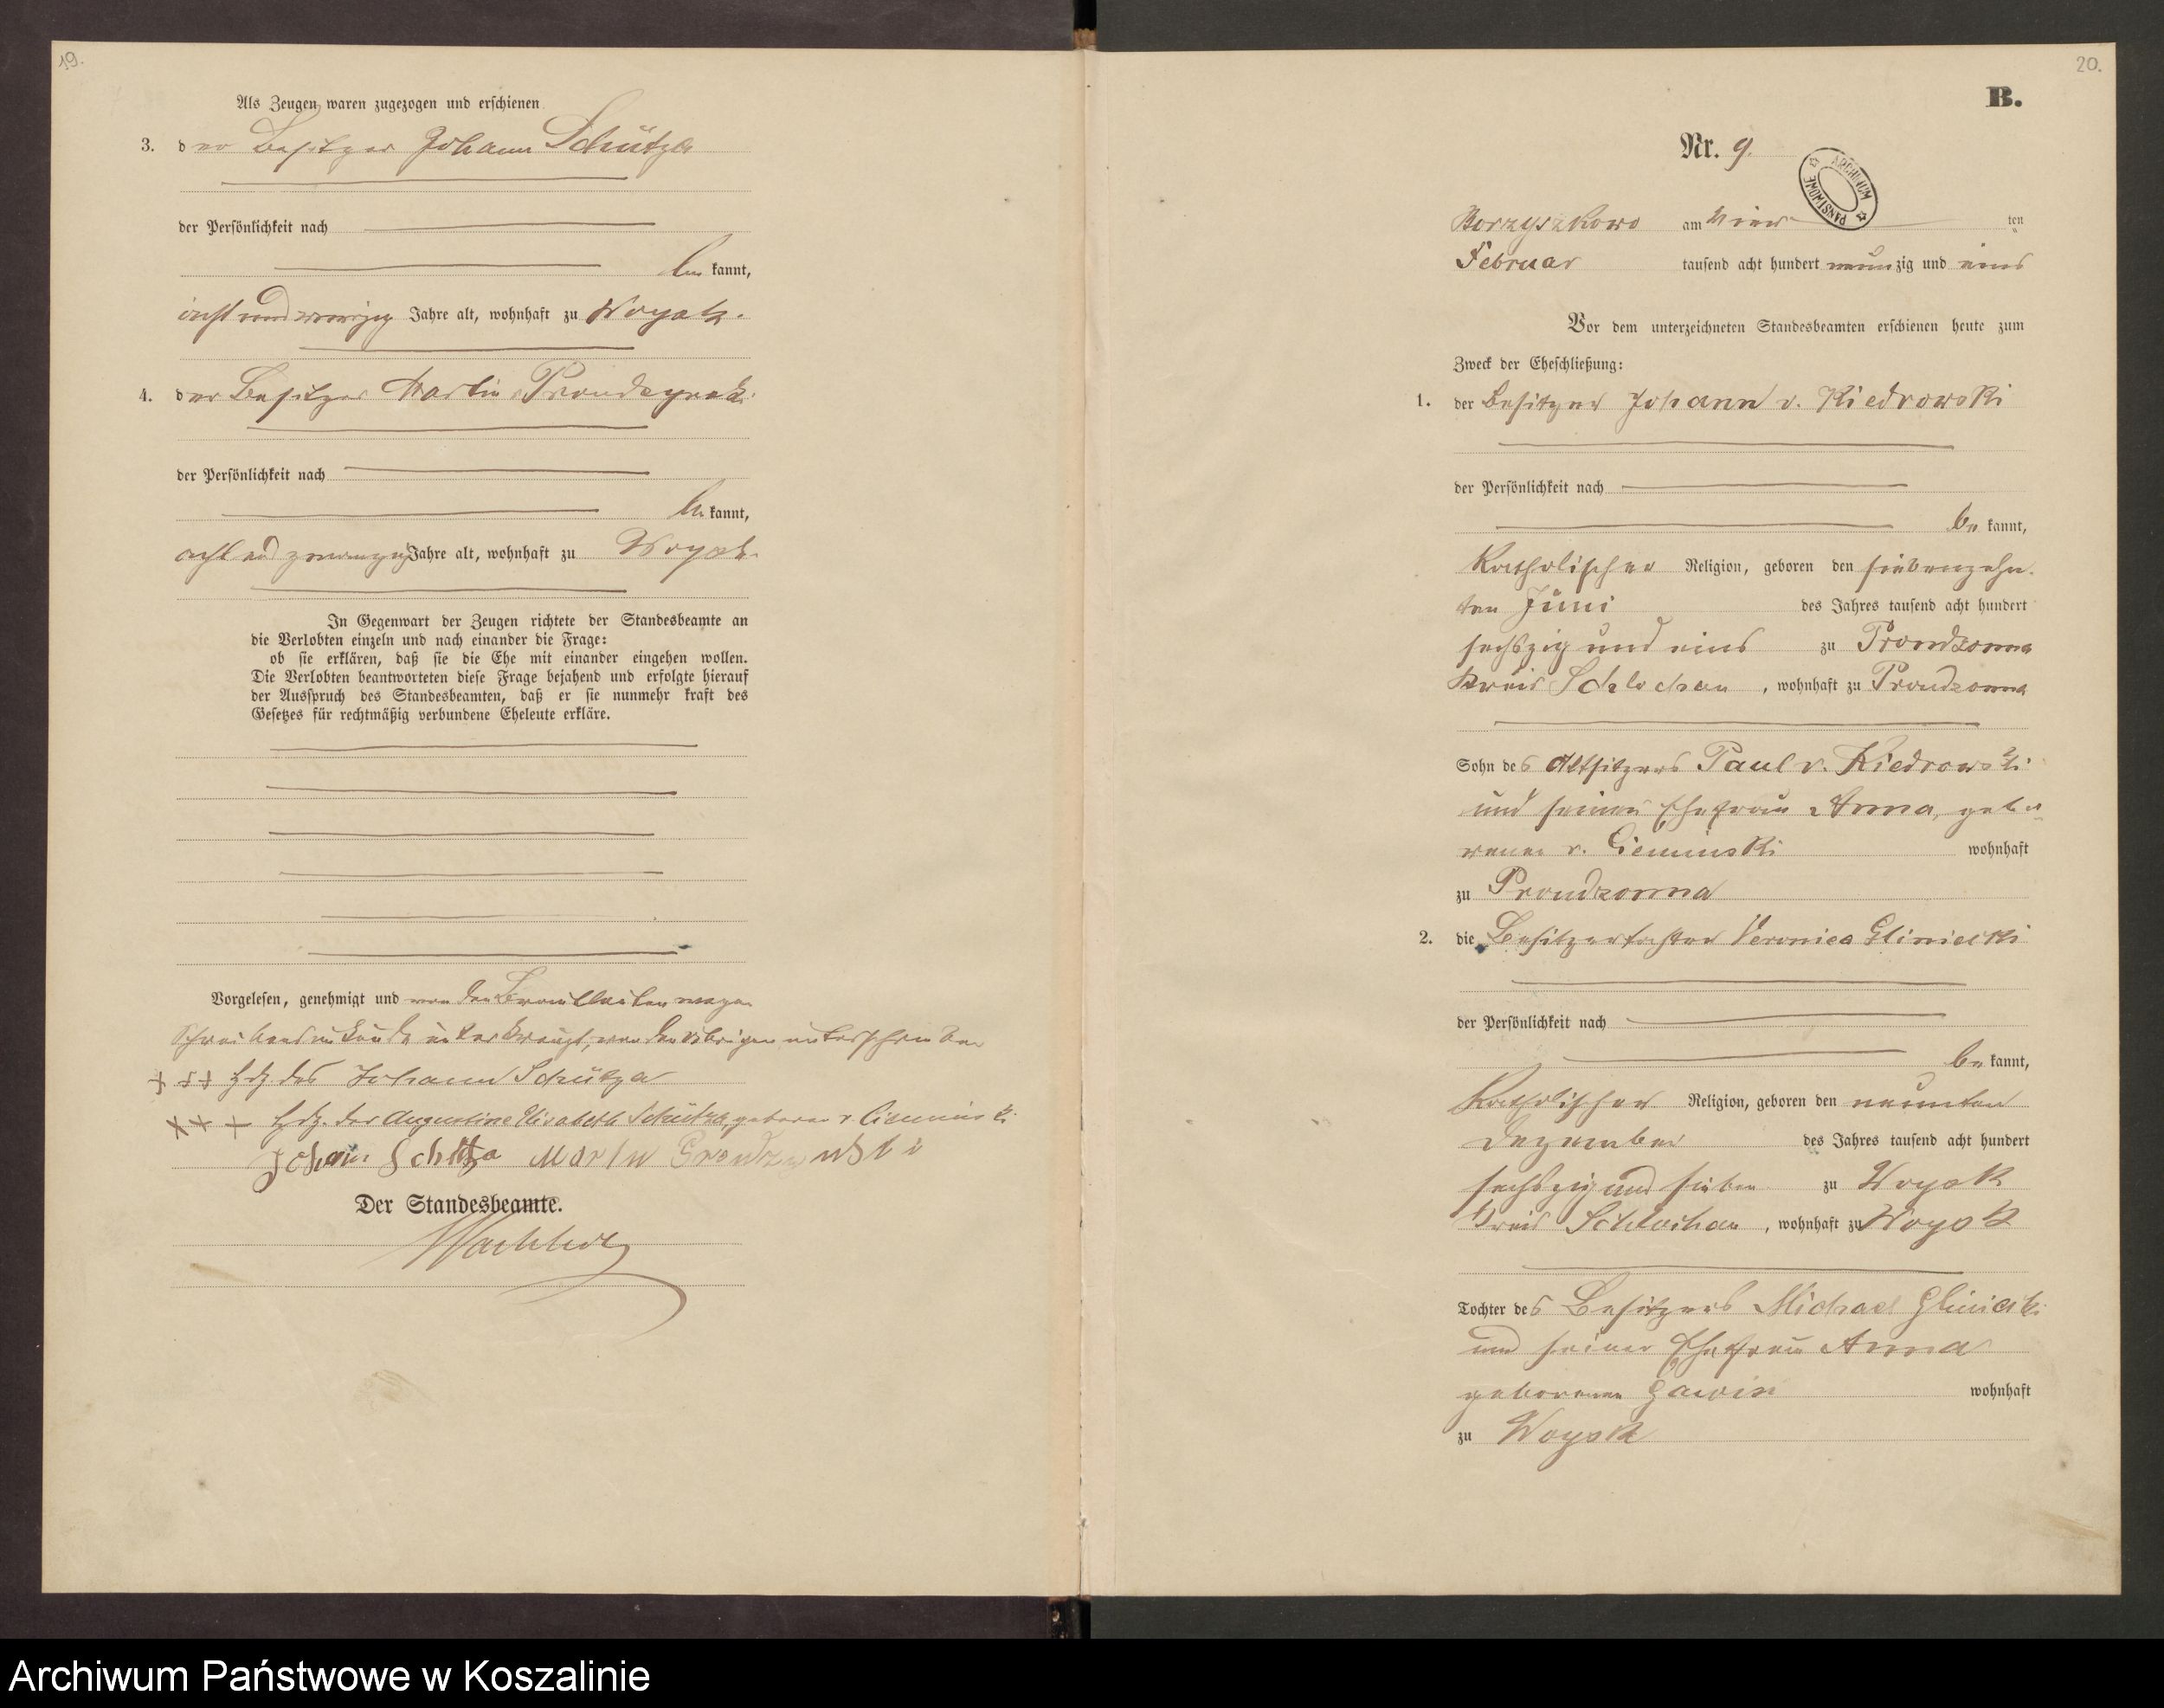 19.
Als Zeugen waren zugezogen und erschienen
3. der Besitzer Johann Schütza
der Persönlichkeit nach
be kannt,
acht und zwanzig Jahre alt, wohnhaft zu Woysk.
4. der Besitzer Martin Prondzynski
der Persönlichkeit nach
be kannt,
acht und zwanzig Jahre alt, wohnhaft zu Woysk.
In Gegenwart der Zeugen richtete der Standesbeamte an
die Verlobten einzeln und nach einander die Frage:
ob sie erklären, daß sie die Ehe mit einander eingehen wollen.
Die Verlobten beantworteten diese Frage bejahend und erfolgte hierauf
der Ausspruch des Standesbeamten, daß er sie nunmehr kraft des
Gesetzes für rechtmäßig verbundene Eheleute erkläre.
Vorgelesen, genehmigt und von den Brautleuten wegen
Schreibensunkunde unterkreuzt, von den übrigen unterschrieben
+ + + Hdz des Johann Schütza
+ + + Hdz. der Augustine Elisabeth Schütza, geborene v Cieminski
Johann Schütza Martin
Der Standesbeamte.
20.
B.
Nr. 9.
ARCHIWUM PAŃSTWOWE
Borzyszkowo am vier ten
Februar tausend acht hundert neun zig und eins
Vor dem unterzeichneten Standesbeamten erschienen heute zum
Zweck der Eheschließung:
1. der Besitzer Johann v. Kiedrowski
der Persönlichkeit nach
be kannt,
katholischer Religion, geboren den siebenzehn-
ten Juni des Jahres tausend acht hundert
sechszig und eins zu Prondzonna
Kreis Schlochau, wohnhaft zu Prondzonna
Sohn des Altsitzers Paul v. Kiedrowski
und seiner Ehefrau Anna, gebo-
renen v. Cieminski wohnhaft
zu Prondzonna
2. die Besitzertochter Veronica Gliniecki
der Persönlichkeit nach
be kannt,
katholischer Religion, geboren den neunten
Dezember des Jahres tausend acht hundert
sechszig und sieben zu Woysk
Kreis Schlochau, wohnhaft zu Woysk
Tochter des Besitzers Michael Gliniecki
und seiner Ehefrau Anna
geborenen Gawin wohnhaft
zu Woysk
Archiwum Państwowe w Koszalinie